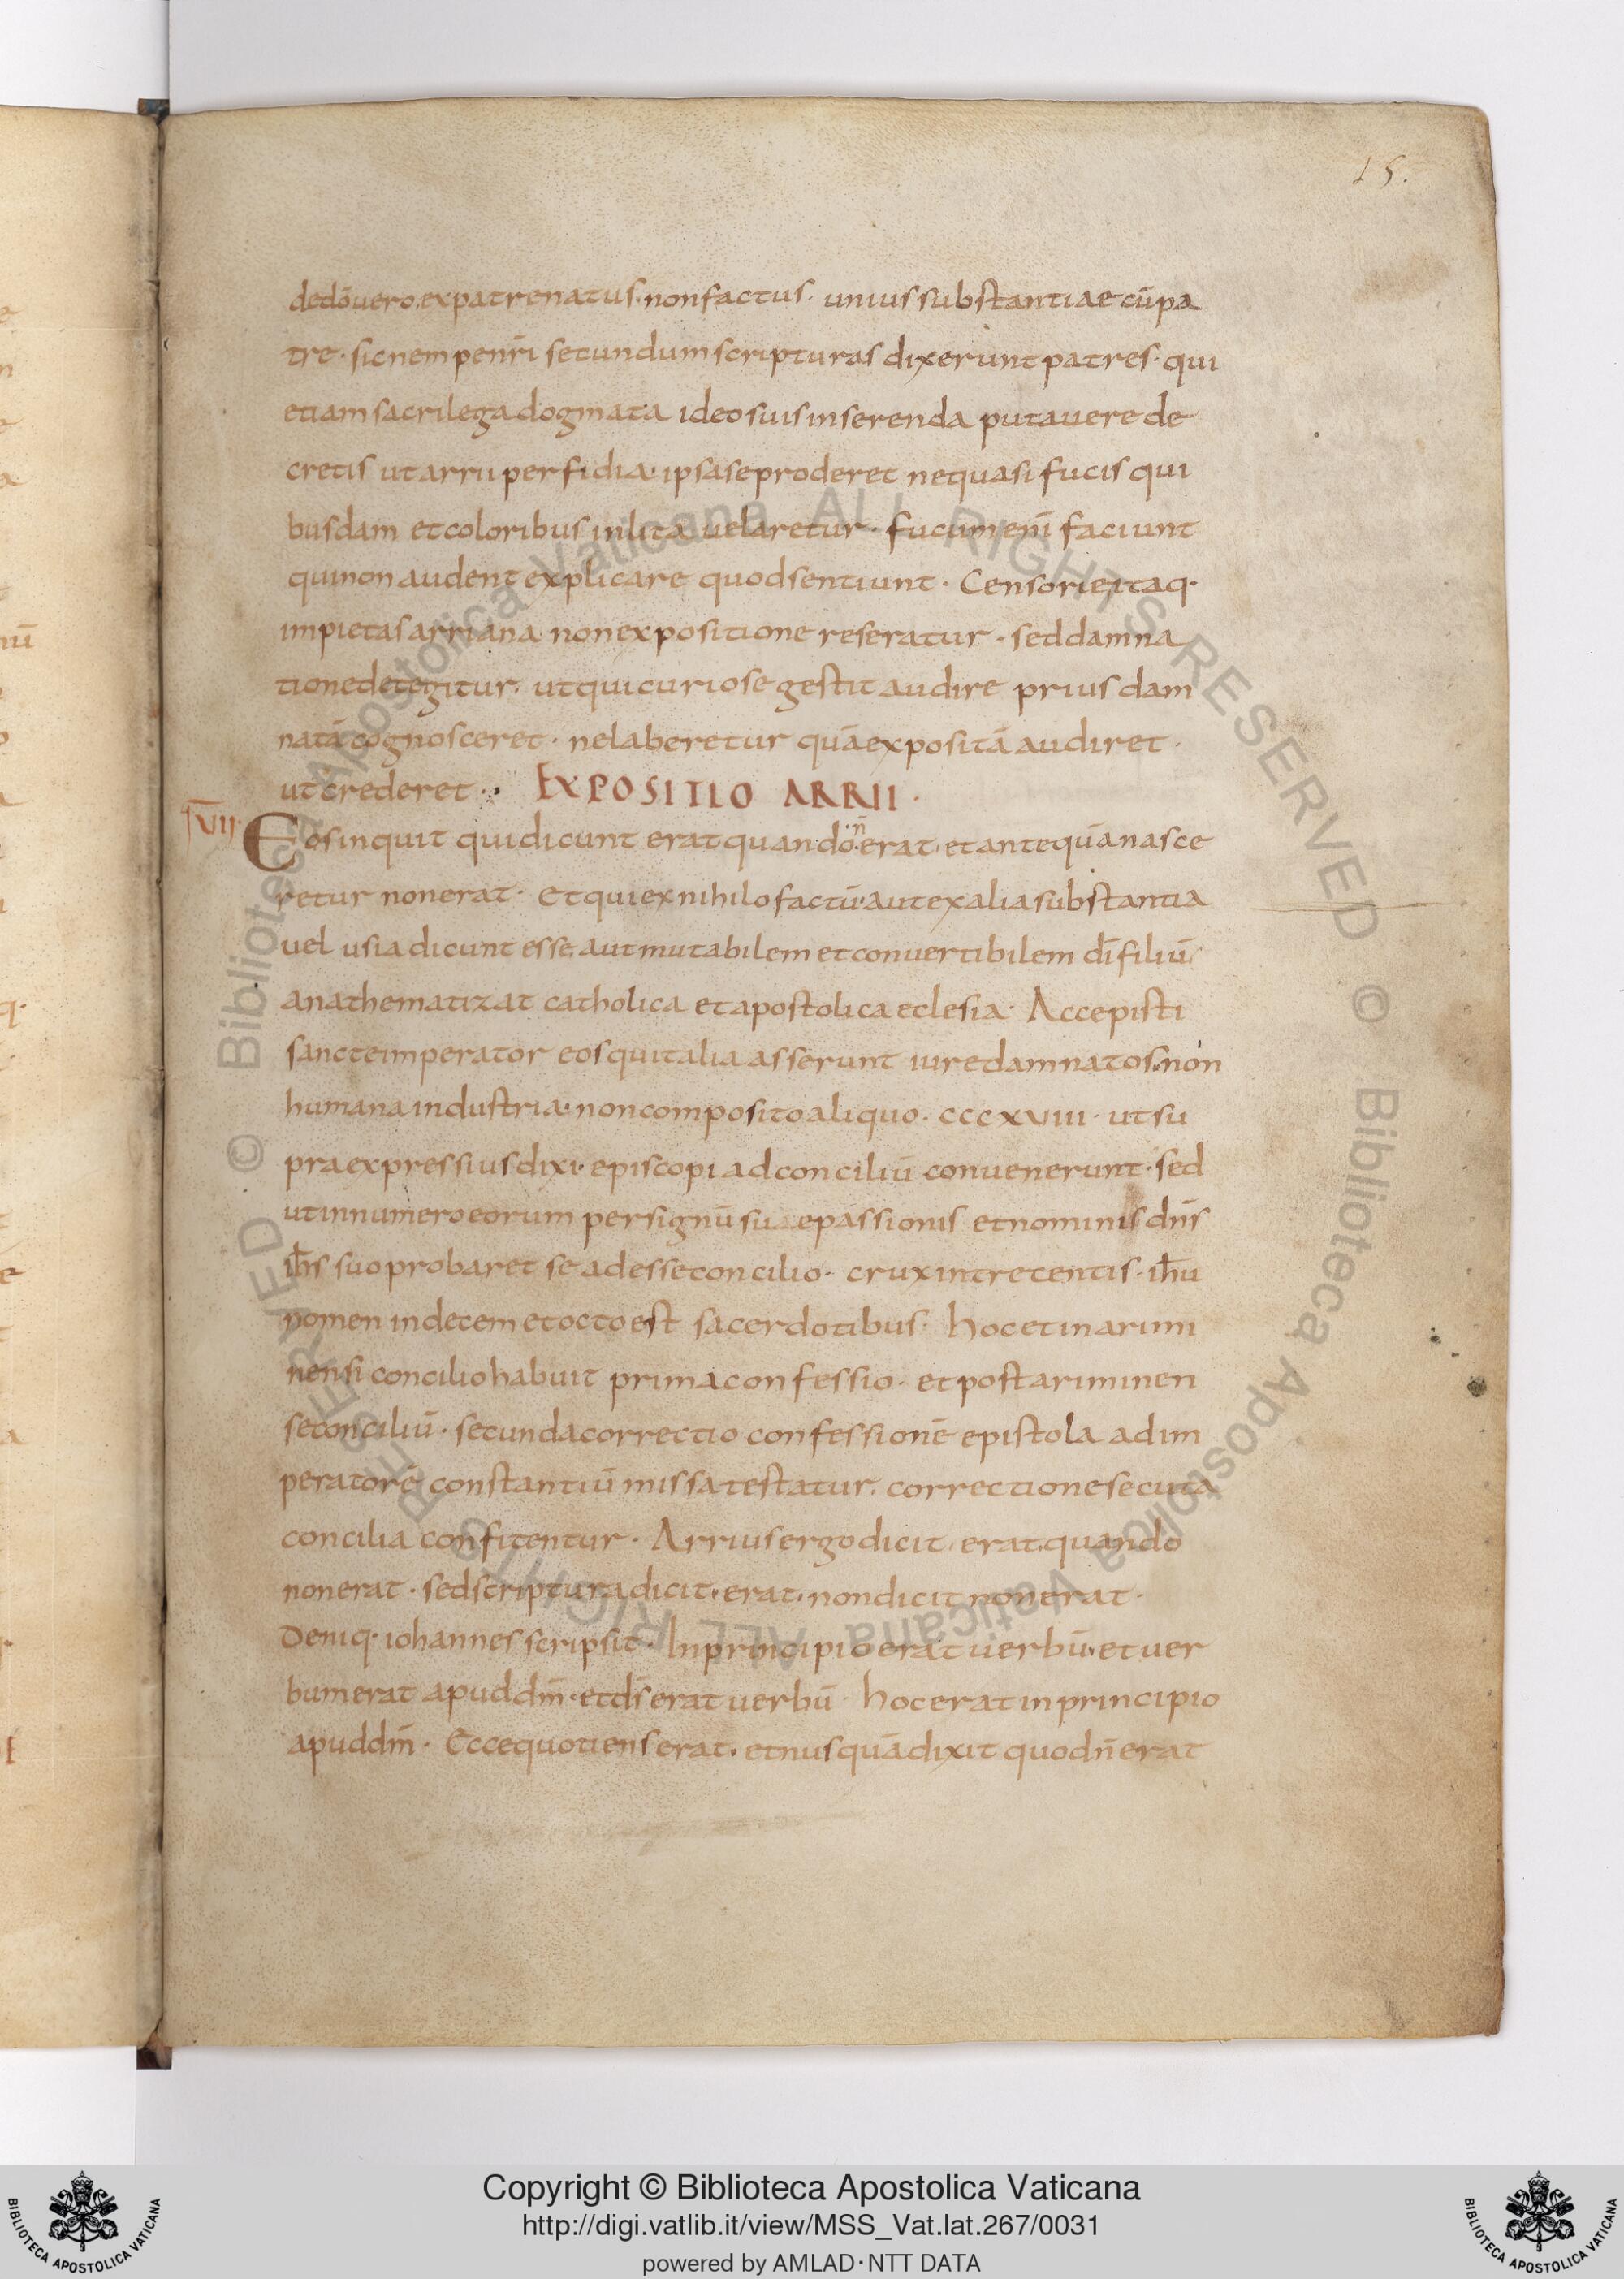 15.
dedōvero. expatrenatus. nonfactus. uniussubstantiae cūpa
tre. sic nempe nr̄i secundum scripturas dixerunt patres. qui
etiam sacrilega dogmata ideo suis inserenda putavere de
cretis ut arrii perfidia. ipsa se proderet ne quasi fucis qui
busdam et coloribus inlita velaretur. fucum enī faciunt
qui non audent explicare quod sentiunt. Censorie itaq.
impietas arriana non expositione reseratur. sed damna
tione detegitur. ut qui curiose gestit audire prius dam
natā cognosceret. ne laberetur quā expositā audiret.
ut crederet. EXPOSITIO ARRII.
VII. Eos inquit qui dicunt erat quando n̄ erat. et antequā nasce
retur non erat. Et qui ex nihilo factū. aut ex alia substantia
vel usia dicunt esse. aut mutabilem et convertibilem dī filiū
anathematizat catholica et apostolica eclesia. Accepisti
sancte imperator eos qui talia asserunt iure damnatos. non
humana industria. non composito aliquo. cccxviii. ut su
pra expressius dixi. episcopi ad conciliū convenerunt. sed
ut in numero eorum per signū suae passionis et nominis dn̄s
ih̄s suo probaret se adesse concilio. crux in trecentis. ih̄u
nomen in decem et octo est sacerdotibus. hoc et in arimi
nensi concilio habuit prima confessio. et post ariminen
se conciliū. secunda correctio confessionē epistola ad im
peratorē constantiū missa testatur. correctione secuta
concilia confitentur. Arrius ergo dicit. erat quando
non erat. sed scriptura dicit. erat. non dicit non erat.
Deniq. iohannes scripsit. In principio erat verbū. et ver
bum erat apud dm̄. et ds̄ erat verbū. hoc erat in principio
apud dm̄. Ecce quotiens erat. et nusquā dixit quod n̄ erat
© Biblioteca Apostolica Vaticana ALL RIGHTS RESERVED © Biblioteca Apostolica Vaticana ALL RIGHTS RESERVED
Copyright © Biblioteca Apostolica Vaticana
http://digi.vatlib.it/view/MSS_Vat.lat.267/0031
powered by AMLAD·NTT DATA
BIBLIOTECA APOSTOLICA VATICANA
BIBLIOTECA APOSTOLICA VATICANA